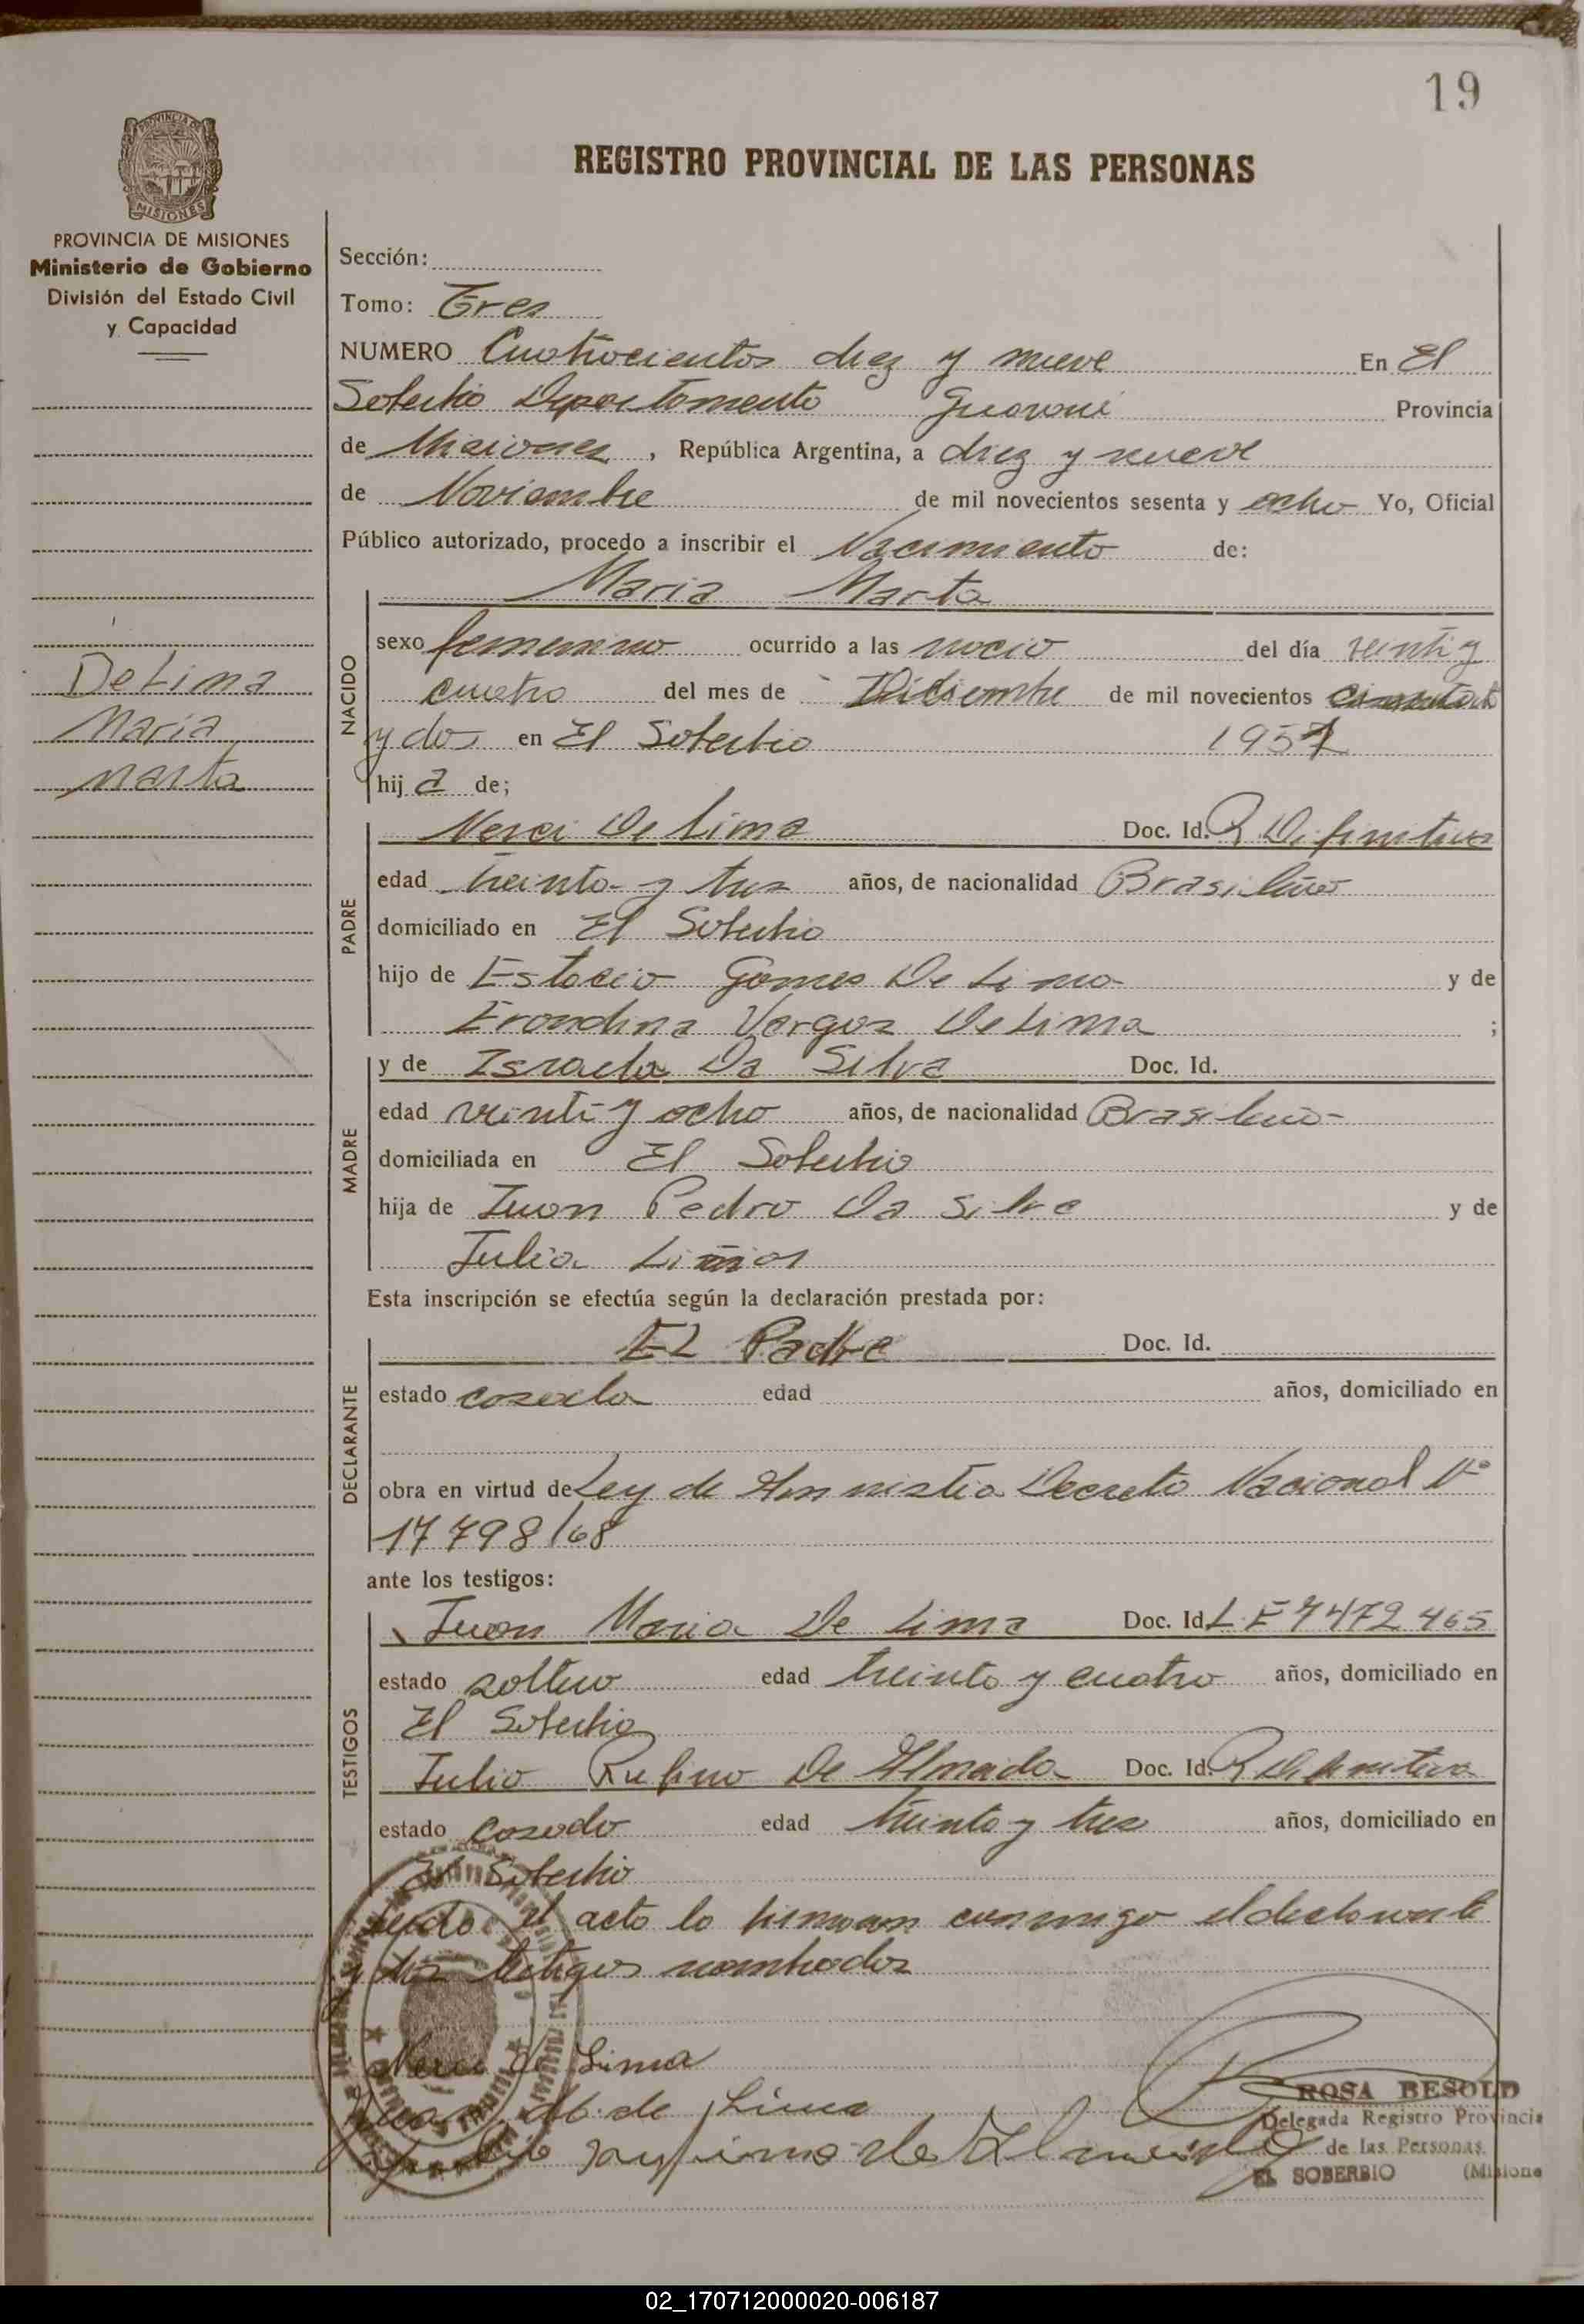 19
REGISTRO PROVINCIAL DE LAS PERSONAS
PROVINCIA DE MISIONES
Ministerio de Gobierno
División del Estado Civil
y Capacidad
Sección:
Tomo: Tres
NUMERO Cuatrocientos diez y nueve En El
Soberbio Departamento Guarani Provincia
de Misiones, República Argentina, a diez y nueve
de Noviembre de mil novecientos sesenta y ocho Yo, Oficial
Público autorizado, procedo a inscribir el Nacimiento de:
Maria Marta
De Lima
Maria
Marta
NACIDO
sexo femenino ocurrido a las del día veinti y
cuatro del mes de Diciembre de mil novecientos
y dos en El Soberbio 1957
hija de;
PADRE
Nerci De Lima Doc. Id. R Difinitiva
edad treinta y tres años, de nacionalidad Brasileño
domiciliado en El Soberbio
hijo de Estacio Gomes De Lima y de
Erondina Vargas De Lima ;
MADRE
y de Israela Da Silva Doc. Id.
edad veinti y ocho años, de nacionalidad Brasileña
domiciliada en El Soberbio
hija de Juan Pedro Da Silva y de
Julia
Esta inscripción se efectúa según la declaración prestada por:
DECLARANTE
El Padre Doc. Id.
estado casado edad años, domiciliado en
obra en virtud de Ley de Amnistia Decreto Nacional Nº
17798/68
ante los testigos:
TESTIGOS
Juan Maria De Lima Doc. Id. L E 7472465
estado soltero edad treinta y cuatro años, domiciliado en
El Soberbio
Julio Rufino De Almada Doc. Id. R Difinitiva
estado casado edad treinta y tres años, domiciliado en
El Soberbio
leido el acto lo firman conmigo el declarante
y los testigos nombrados
Nerci de Lima
Juan M. de Lima
ROSA BESOLD
Delegada Registro Provincia
de las Personas
EL SOBERBIO (Misione
02_170712000020-006187